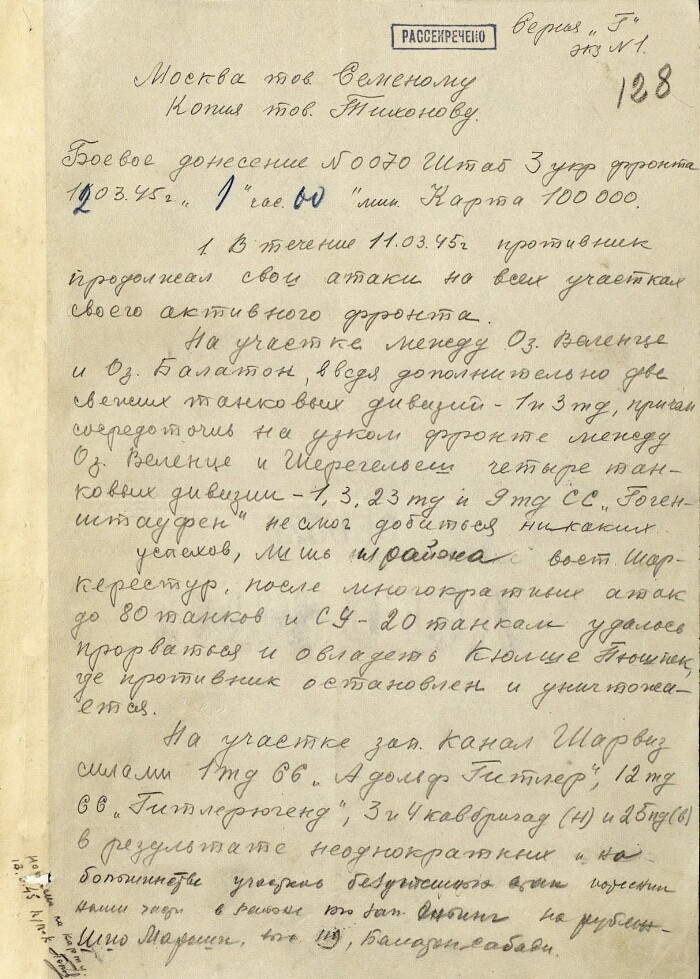 РАССЕКРЕЧЕНО
Серия „Г"
экз N 1.
128
Москва тов. Семеному
Копия тов. Тихонову.
Боевое донесение N 0070 Штаб 3 укр фронта
12.03.45г „1" час. 00 "мин. Карта 100 000.
1. В течение 11.03.45г противник
продолжал свои атаки на всех участках
своего активного фронта.
На участке между Оз. Веленце
и Оз. Балатон, введя дополнительно две
свежих танковых дивизии - 1 и 3 тд, причем
сосредоточив на узком фронте между
Оз. Веленце и Шерегельеш четыре тан-
ковых дивизии - 1, 3, 23 тд и 9 тд СС „Гоген-
штауфен" не смог добиться никаких
успехов, лишь района вост. Шар-
керестур, после многократных атак
до 80 танков и СУ - 20 танкам удалось
прорваться и овладеть Кюлше Пюшпек,
где противник остановлен и уничтожа-
ется.
На участке зап. канал Шарвиз
силами 1 тд СС „Адольф Гитлер", 12 тд
СС „Гитлерюгенд", 3 и 4 кавбригад (н) и 25 пд (в)
в результате неоднократных и на
большинстве участков атак потеснил
наши части в районе на рубеж